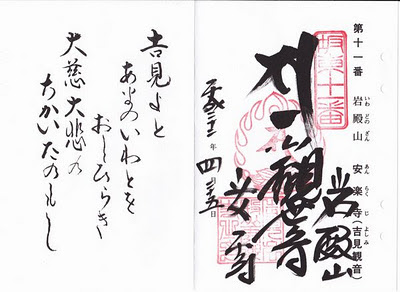 第十一番 岩殿山 安楽寺(吉見観音)
いわ どの ざん あん らく じ よしみ
坂東十一番
岩殿山
年 四月 日
安楽寺
吉見よと
あまのいわとを
おしひらき
大慈大悲の
ちかいたのもし